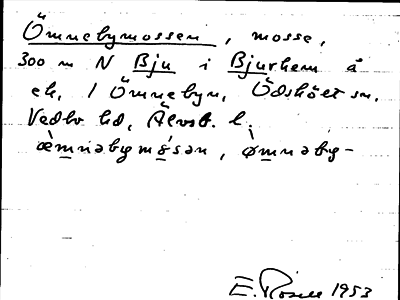 Ömnebymossen, mosse,
300 m N Bju i Bjurhem å
ek, 1 Ömnebyn, Ödskölt sn,
Vedbo hd, Älvsb. l.
æ̀mnəbymɷ́sən, ø̀mnəby-
E. Rosell 1953